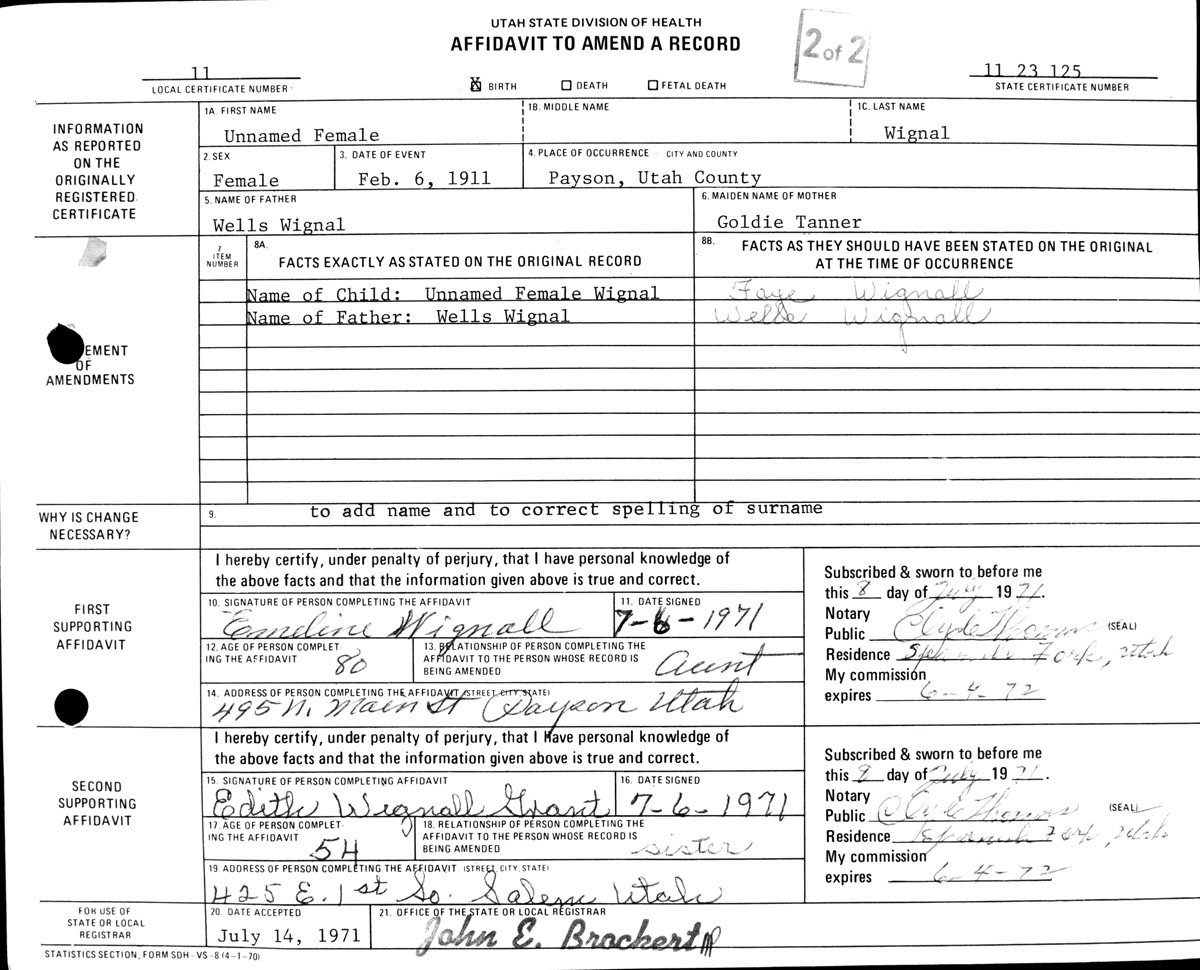 UTAH STATE DIVISION OF HEALTH
AFFIDAVIT TO AMEND A RECORD
2 of 2
11
LOCAL CERTIFICATE NUMBER
X BIRTH ☐ DEATH ☐ FETAL DEATH
11 23 125
STATE CERTIFICATE NUMBER
INFORMATION
AS REPORTED
ON THE
ORIGINALLY
REGISTERED
CERTIFICATE
1A. FIRST NAME
Unnamed Female
1B. MIDDLE NAME
1C. LAST NAME
Wignal
2. SEX
Female
3. DATE OF EVENT
Feb. 6, 1911
4. PLACE OF OCCURRENCE - CITY AND COUNTY
Payson, Utah County
5. NAME OF FATHER
Wells Wignal
6. MAIDEN NAME OF MOTHER
Goldie Tanner
EMENT
OF
AMENDMENTS
7
ITEM
NUMBER
8A.
FACTS EXACTLY AS STATED ON THE ORIGINAL RECORD
8B. FACTS AS THEY SHOULD HAVE BEEN STATED ON THE ORIGINAL
AT THE TIME OF OCCURRENCE
Name of Child: Unnamed Female Wignal
Faye Wignall
Name of Father: Wells Wignal
Wells Wignall
WHY IS CHANGE
NECESSARY?
9. to add name and to correct spelling of surname
FIRST
SUPPORTING
AFFIDAVIT
I hereby certify, under penalty of perjury, that I have personal knowledge of
the above facts and that the information given above is true and correct.
10. SIGNATURE OF PERSON COMPLETING THE AFFIDAVIT
Emeline Wignall
11. DATE SIGNED
7-6-1971
12. AGE OF PERSON COMPLET-
ING THE AFFIDAVIT
80
13. RELATIONSHIP OF PERSON COMPLETING THE
AFFIDAVIT TO THE PERSON WHOSE RECORD IS
BEING AMENDED
Aunt
14. ADDRESS OF PERSON COMPLETING THE AFFIDAVIT (STREET, CITY, STATE)
495 N. Main St Payson Utah
Subscribed & sworn to before me
this 8 day of July 1971.
Notary
Public Clyde Thomas (SEAL)
Residence Spanish Fork, Utah
My commission
expires 6-4-72
SECOND
SUPPORTING
AFFIDAVIT
I hereby certify, under penalty of perjury, that I have personal knowledge of
the above facts and that the information given above is true and correct.
15. SIGNATURE OF PERSON COMPLETING AFFIDAVIT
Edith Wignall Grant
16. DATE SIGNED
7-6-1971
17. AGE OF PERSON COMPLET-
ING THE AFFIDAVIT
54
18. RELATIONSHIP OF PERSON COMPLETING THE
AFFIDAVIT TO THE PERSON WHOSE RECORD IS
BEING AMENDED
sister
19. ADDRESS OF PERSON COMPLETING THE AFFIDAVIT (STREET, CITY, STATE)
425 E. 1st So. Salem Utah
Subscribed & sworn to before me
this 8 day of July 1971.
Notary
Public Clyde Thomas (SEAL)
Residence Spanish Fork, Utah
My commission
expires 6-4-72
FOR USE OF
STATE OR LOCAL
REGISTRAR
20. DATE ACCEPTED
July 14, 1971
21. OFFICE OF THE STATE OR LOCAL REGISTRAR
John E. Brockert
STATISTICS SECTION, FORM SDH-VS-8 (4-1-70)